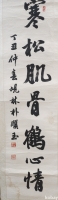 寒松肌骨鶴心情
丁丑仲春